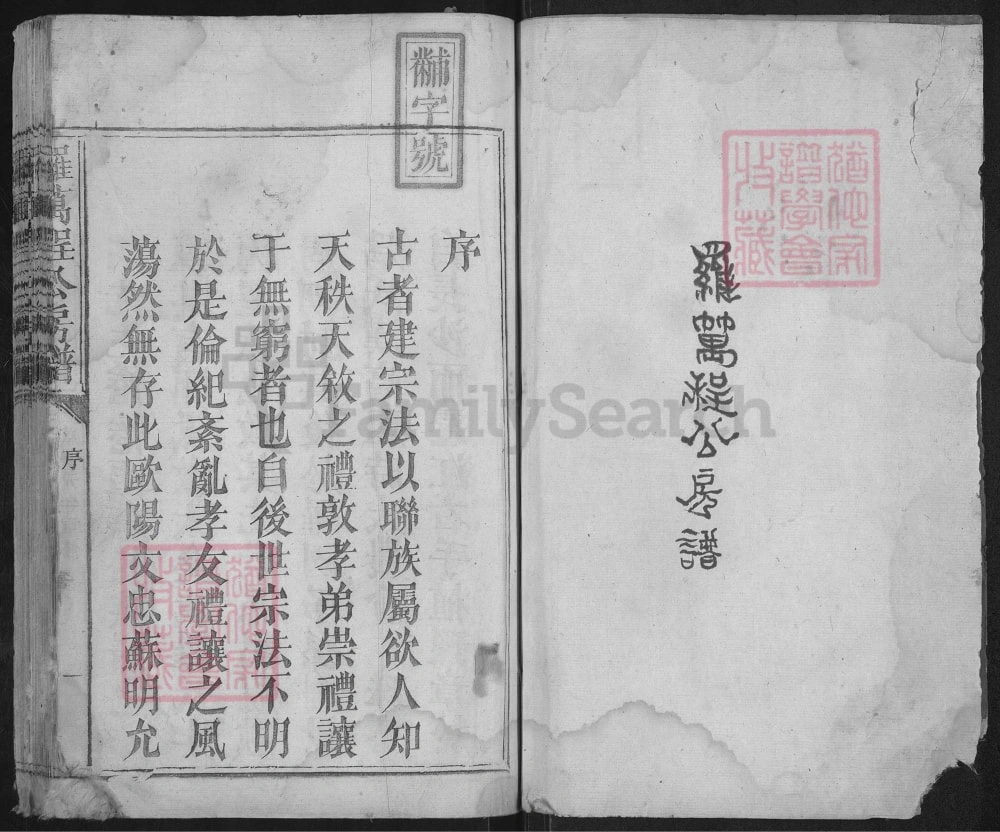 羅萬程公房譜
黼字號
序
古者建宗法以聯族屬欲人知
天秩天敘之禮敦孝弟崇禮讓
于無窮者也自後世宗法不明
於是倫紀紊亂孝友禮讓之風
蕩然無存此歐陽文忠蘇明允
羅萬程公房譜
序
一
譜學會
收藏
FamilySearch